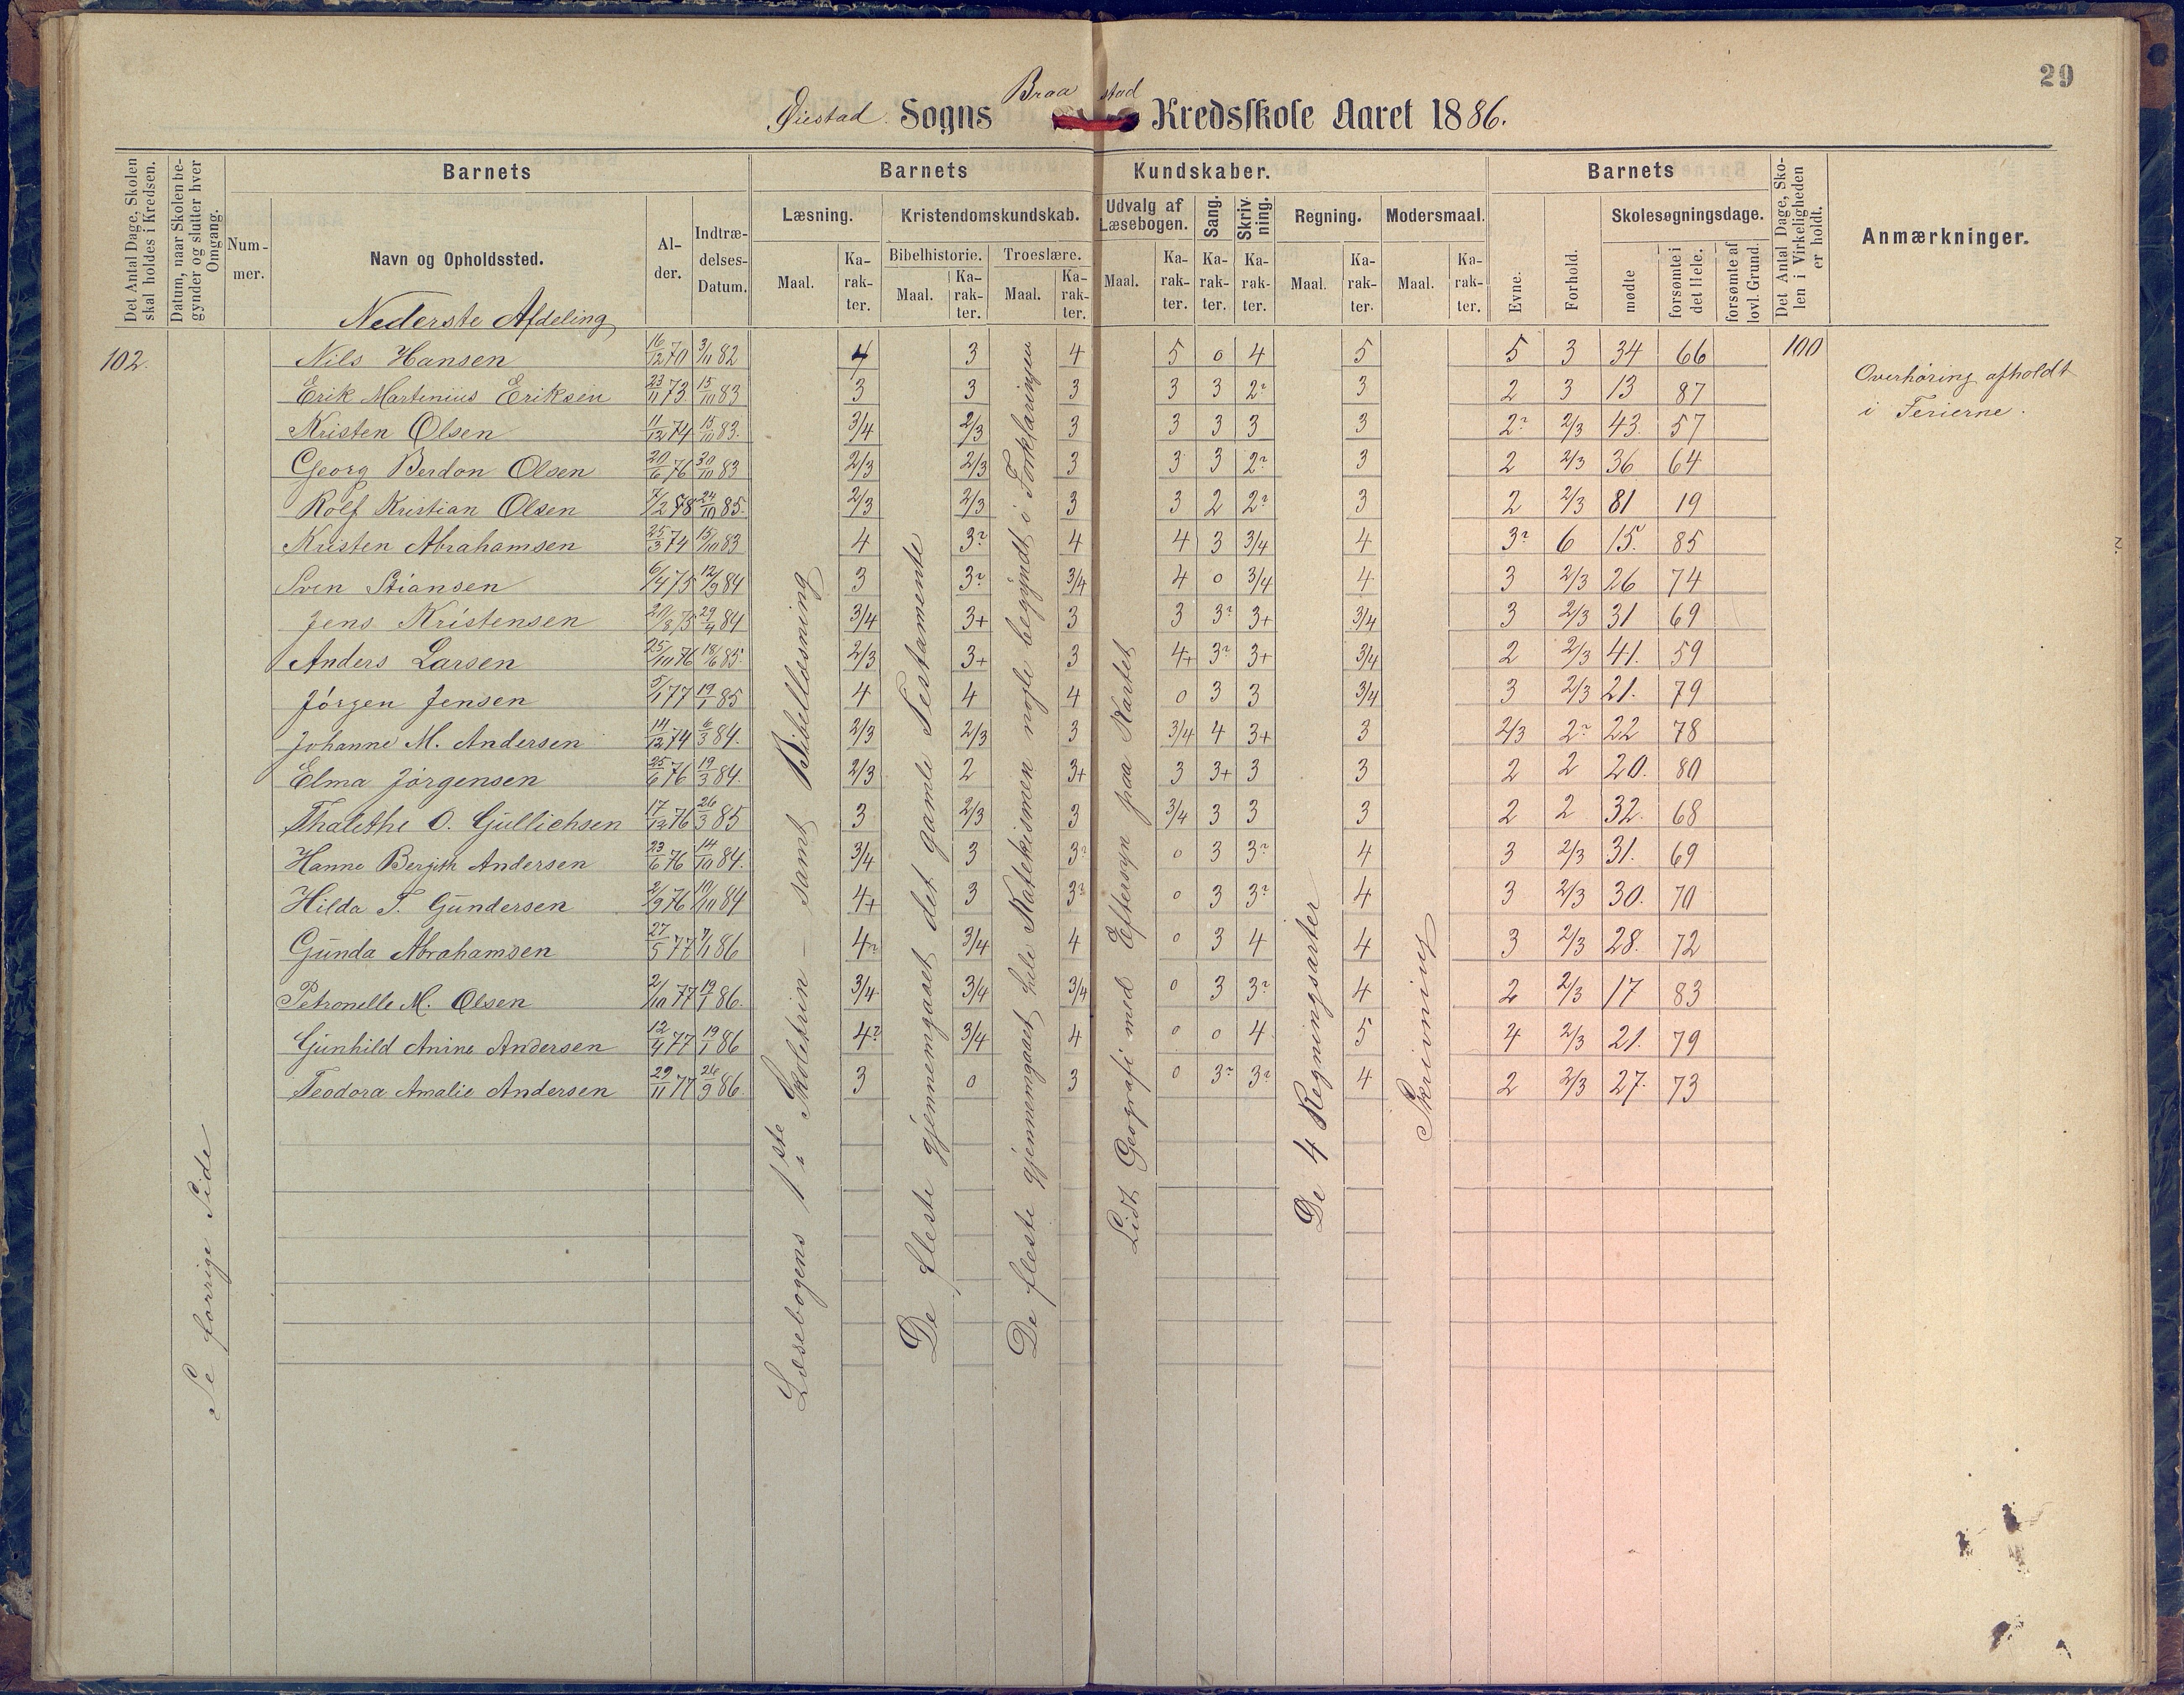 29
Øiestad Sogns Braastad Kredsskole Aaret 1886.
Det Antal Dage, Skolen skal holdes i Kredsen.
Datum, naar Skolen begynder og slutter hver Omgang.
Nummer.
Barnets
Navn og Opholdssted.
Alder.
Indtrædelses-Datum.
Barnets Kundskaber.
Læsning.
Maal.
Karakter.
Kristendomskundskab.
Bibelhistorie.
Maal.
Karakter.
Troeslære.
Maal.
Karakter.
Udvalg af Læsebogen.
Maal.
Karakter.
Sang.
Karakter.
Skrivning.
Karakter.
Regning.
Maal.
Karakter.
Modersmaal.
Maal.
Karakter.
Barnets
Evne.
Forhold.
Skolesøgningsdage.
mødte
forsømte i det Hele.
forsømte af lovl. Grund.
Det Antal Dage, Skolen i Virkeligheden er holdt.
Anmærkninger.
Nederste Afdeling
102. Nils Hansen 16/12 70 3/11 82 4 3 4 5 0 4 5 5 3 34 66 100
Erik Martinius Eriksen 23/11 73 15/10 83 3 3 3 3 3 2? 3 2 3 13 87
Kristen Olsen 11/12 74 15/10 83. 3/4 2/3 3 3 3 3 3 2? 2/3 43. 57
Georg Berdon Olsen 20/6 76 30/10 83 2/3 2/3 3 3 3 2? 3 2 2/3 36 64
Rolf Kristian Olsen 7/2 78 24/10 85. 2/3 2/3 3 3 2 2? 3 2 2/3 81 19
Kristen Abrahamsen 25/3 74 15/10 83 4 3? 4 4 3 3/4 4 3? 6 15. 85
Sven Stiansen 6/4 75 12/9 84 3 3? 3/4 4 0 3/4 4 3 2/3 26 74
Jens Kristensen 20/8 75 29/4 84 3/4 3+ 3 3 3? 3+ 3/4 3 2/3 31 69
Anders Larsen 25/10 76 18/6 85. 2/3 3+ 3 4+ 3? 3+ 3/4 2 2/3 41. 59
Jørgen Jensen 5/1 77 19/1 85 4 4 4 0 3 3 3/4 3 2/3 21. 79
Johanne M. Andersen 14/12 74 6/3 84. 2/3 2/3 3 3/4 4 3+ 3 2/3 2? 22 78
Elma Jørgensen 25/6 76 19/3 84. 2/3 2 3+ 3 3+ 3 3 2 2 20. 80
Thalethe O. Gullichsen 17/12 76 26/3 85 3 2/3 3 3/4 3 3 3 2 2 32. 68
Hanne Bergith Andersen 23/6 76 14/10 84. 3/4 3 3? 0 3 3? 4 3 2/3 31. 69
Hilda T. Gundersen 2/9 76 10/10 84 4+ 3 3? 0 3 3? 4 3 2/3 30. 70
Gunda Abrahamsen 27/5 77 7/1 86 4? 3/4 4 0 3 4 4 3 2/3 28. 72
Petronelle M. Olsen 2/10 77 19/1 86. 3/4 3/4 3/4 0 3 3? 4 2 2/3 17 83
Gunhild Anine Andersen 12/4 77 19/1 86 4? 3/4 4 0 0 4 5 4 2/3 21. 79
Teodora Amalie Andersen 29/11 77 26/9 86. 3 0 3 0 3? 3? 4 2 2/3 27. 73
Se forrige Side
Læsebogens 1ste Skoletrin – samt Bibellæsning
De fleste gjennemgaaet det gamle Testamente
De fleste gjennemgaaet hele Katekismen nogle begyndt i Forklaringen
Lidt Geografi med Eftersyn paa Kartet
De 4 Regningsarter
Skrivning
Overhøring afholdt
i Ferierne.